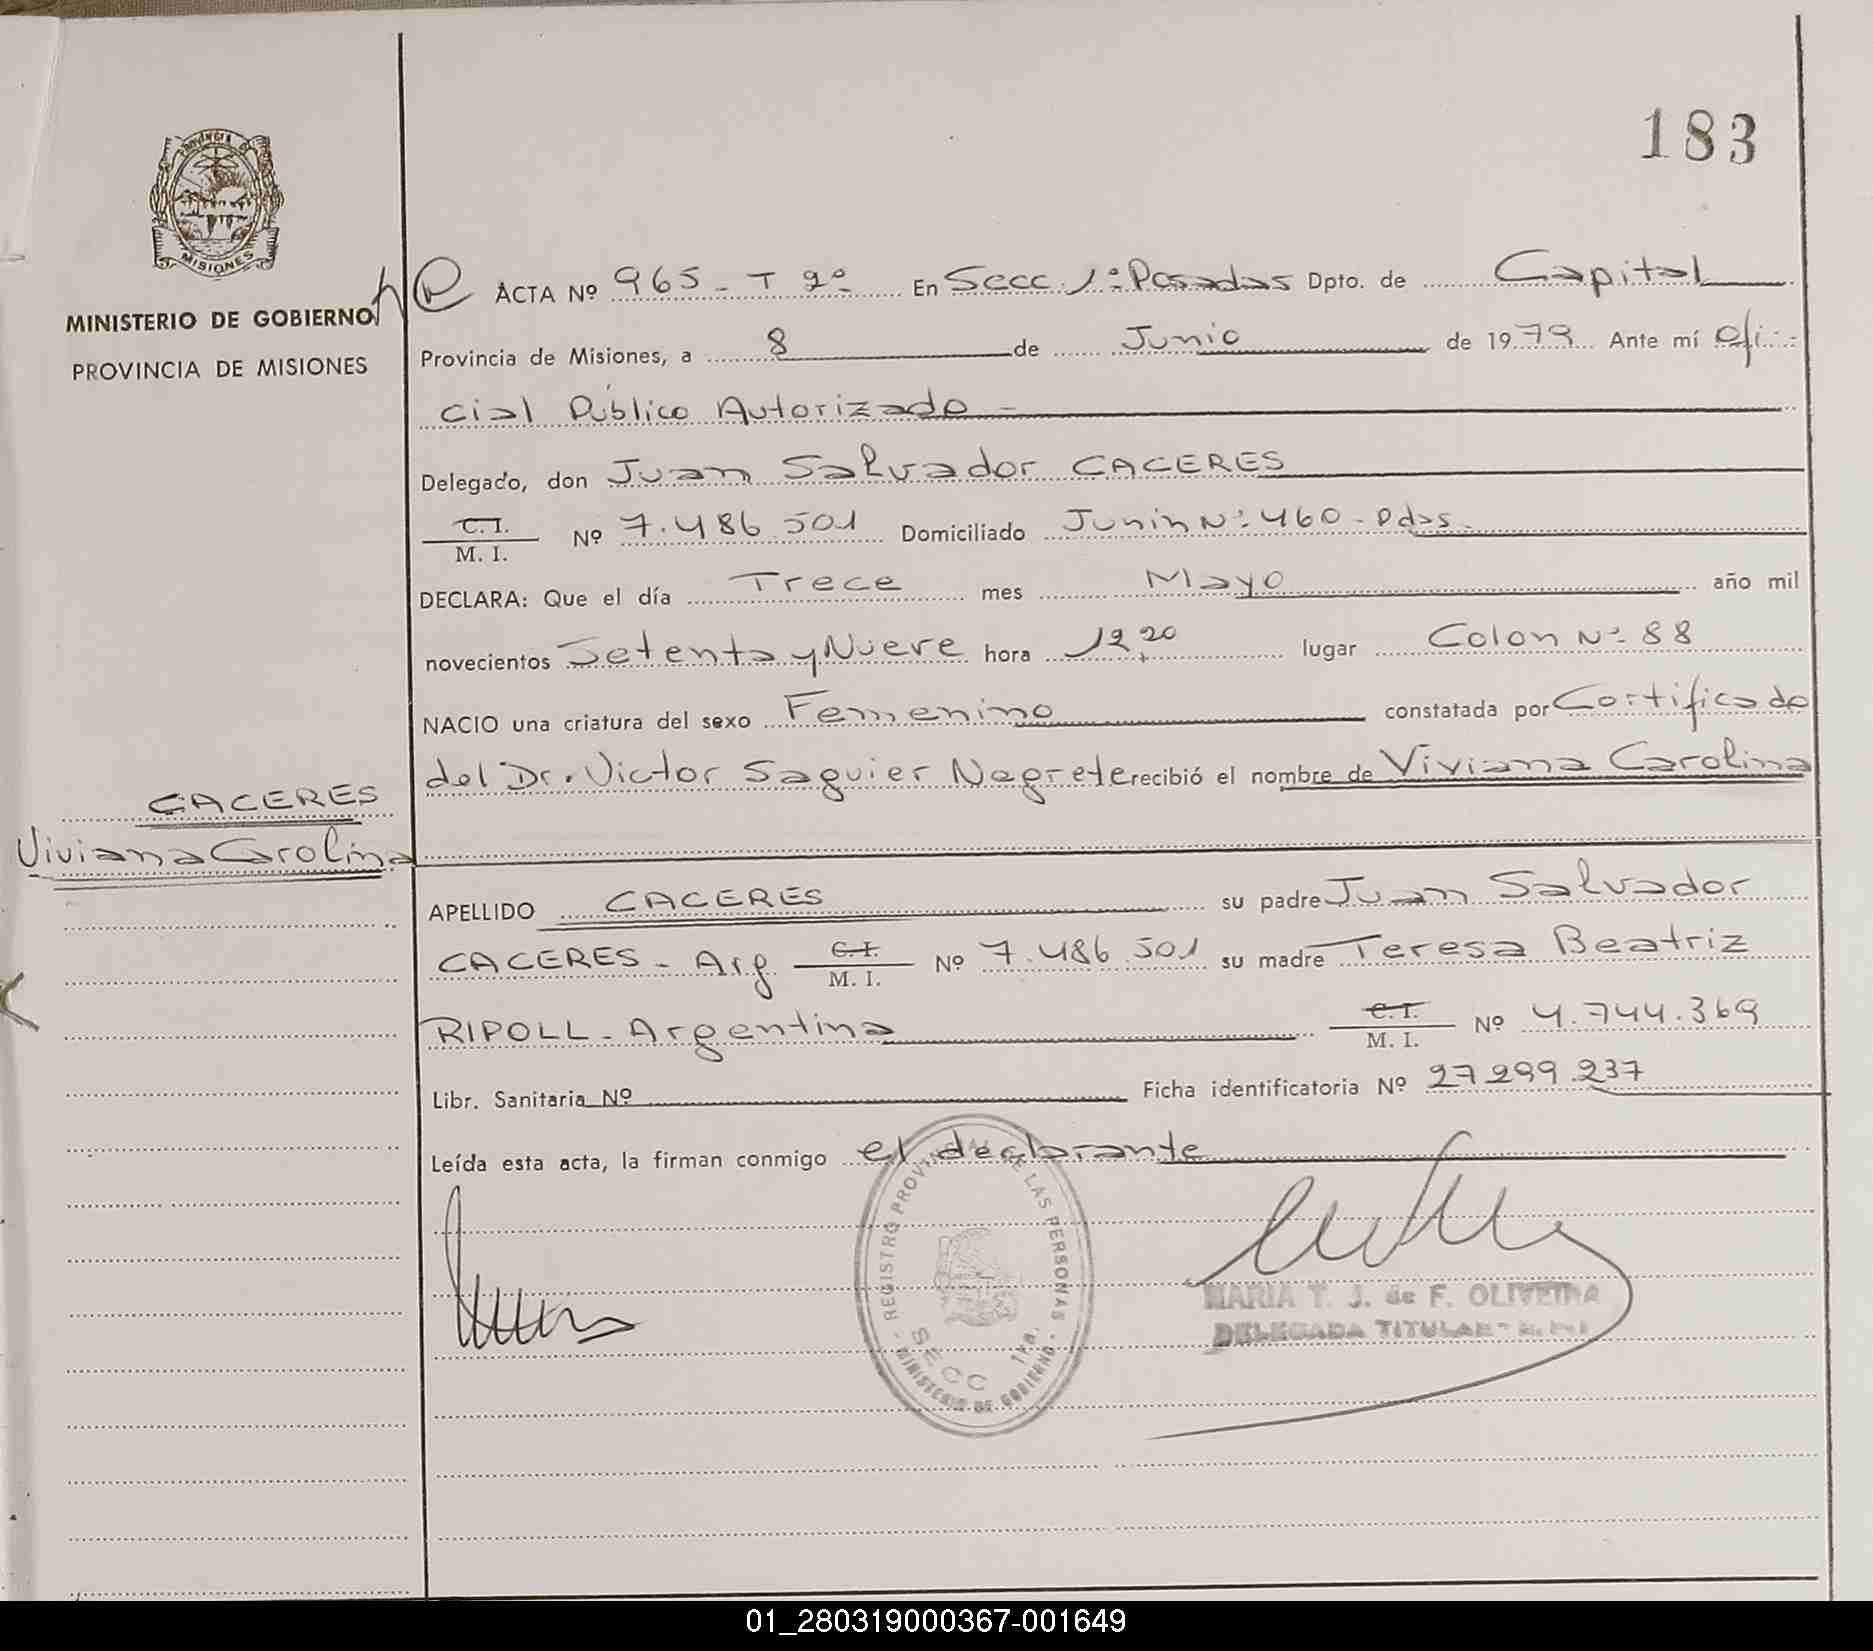 183
PROVINCIA DE
MISIONES
MINISTERIO DE GOBIERNO
PROVINCIA DE MISIONES
ACTA Nº 965 - T 2º En Secc 1ª Posadas Dpto. de Capital
Provincia de Misiones, a 8 de Junio de 1979 Ante mí Ofi
cial Público Autorizado -
Delegado, don Juan Salvador CACERES
C.I.
M. I. Nº 7.486.501 Domiciliado Junin Nº 460 - Pdas.
DECLARA: Que el día Trece mes Mayo año mil
novecientos Setenta y Nueve hora 12,20 lugar Colon Nº 88
NACIO una criatura del sexo Femenino constatada por Certificado
del Dr. Victor Saguier Negrete recibió el nombre de Viviana Carolina
CACERES
Viviana Carolina
APELLIDO CACERES su padre Juan Salvador
CACERES - Arg C.I. M. I. Nº 7.486.501 su madre Teresa Beatriz
RIPOLL - Argentina C.I. M. I. Nº 4.744.369
Libr. Sanitaria Nº Ficha identificatoria Nº 27.299.237
Leída esta acta, la firman conmigo el declarante
- REGISTRO PROVINCIAL DE LAS PERSONAS -
MINISTERIO DE GOBIERNO
SECC 1ra.
MARIA T. J. de F. OLIVEIRA
DELEGADA TITULAR
01_280319000367-001649